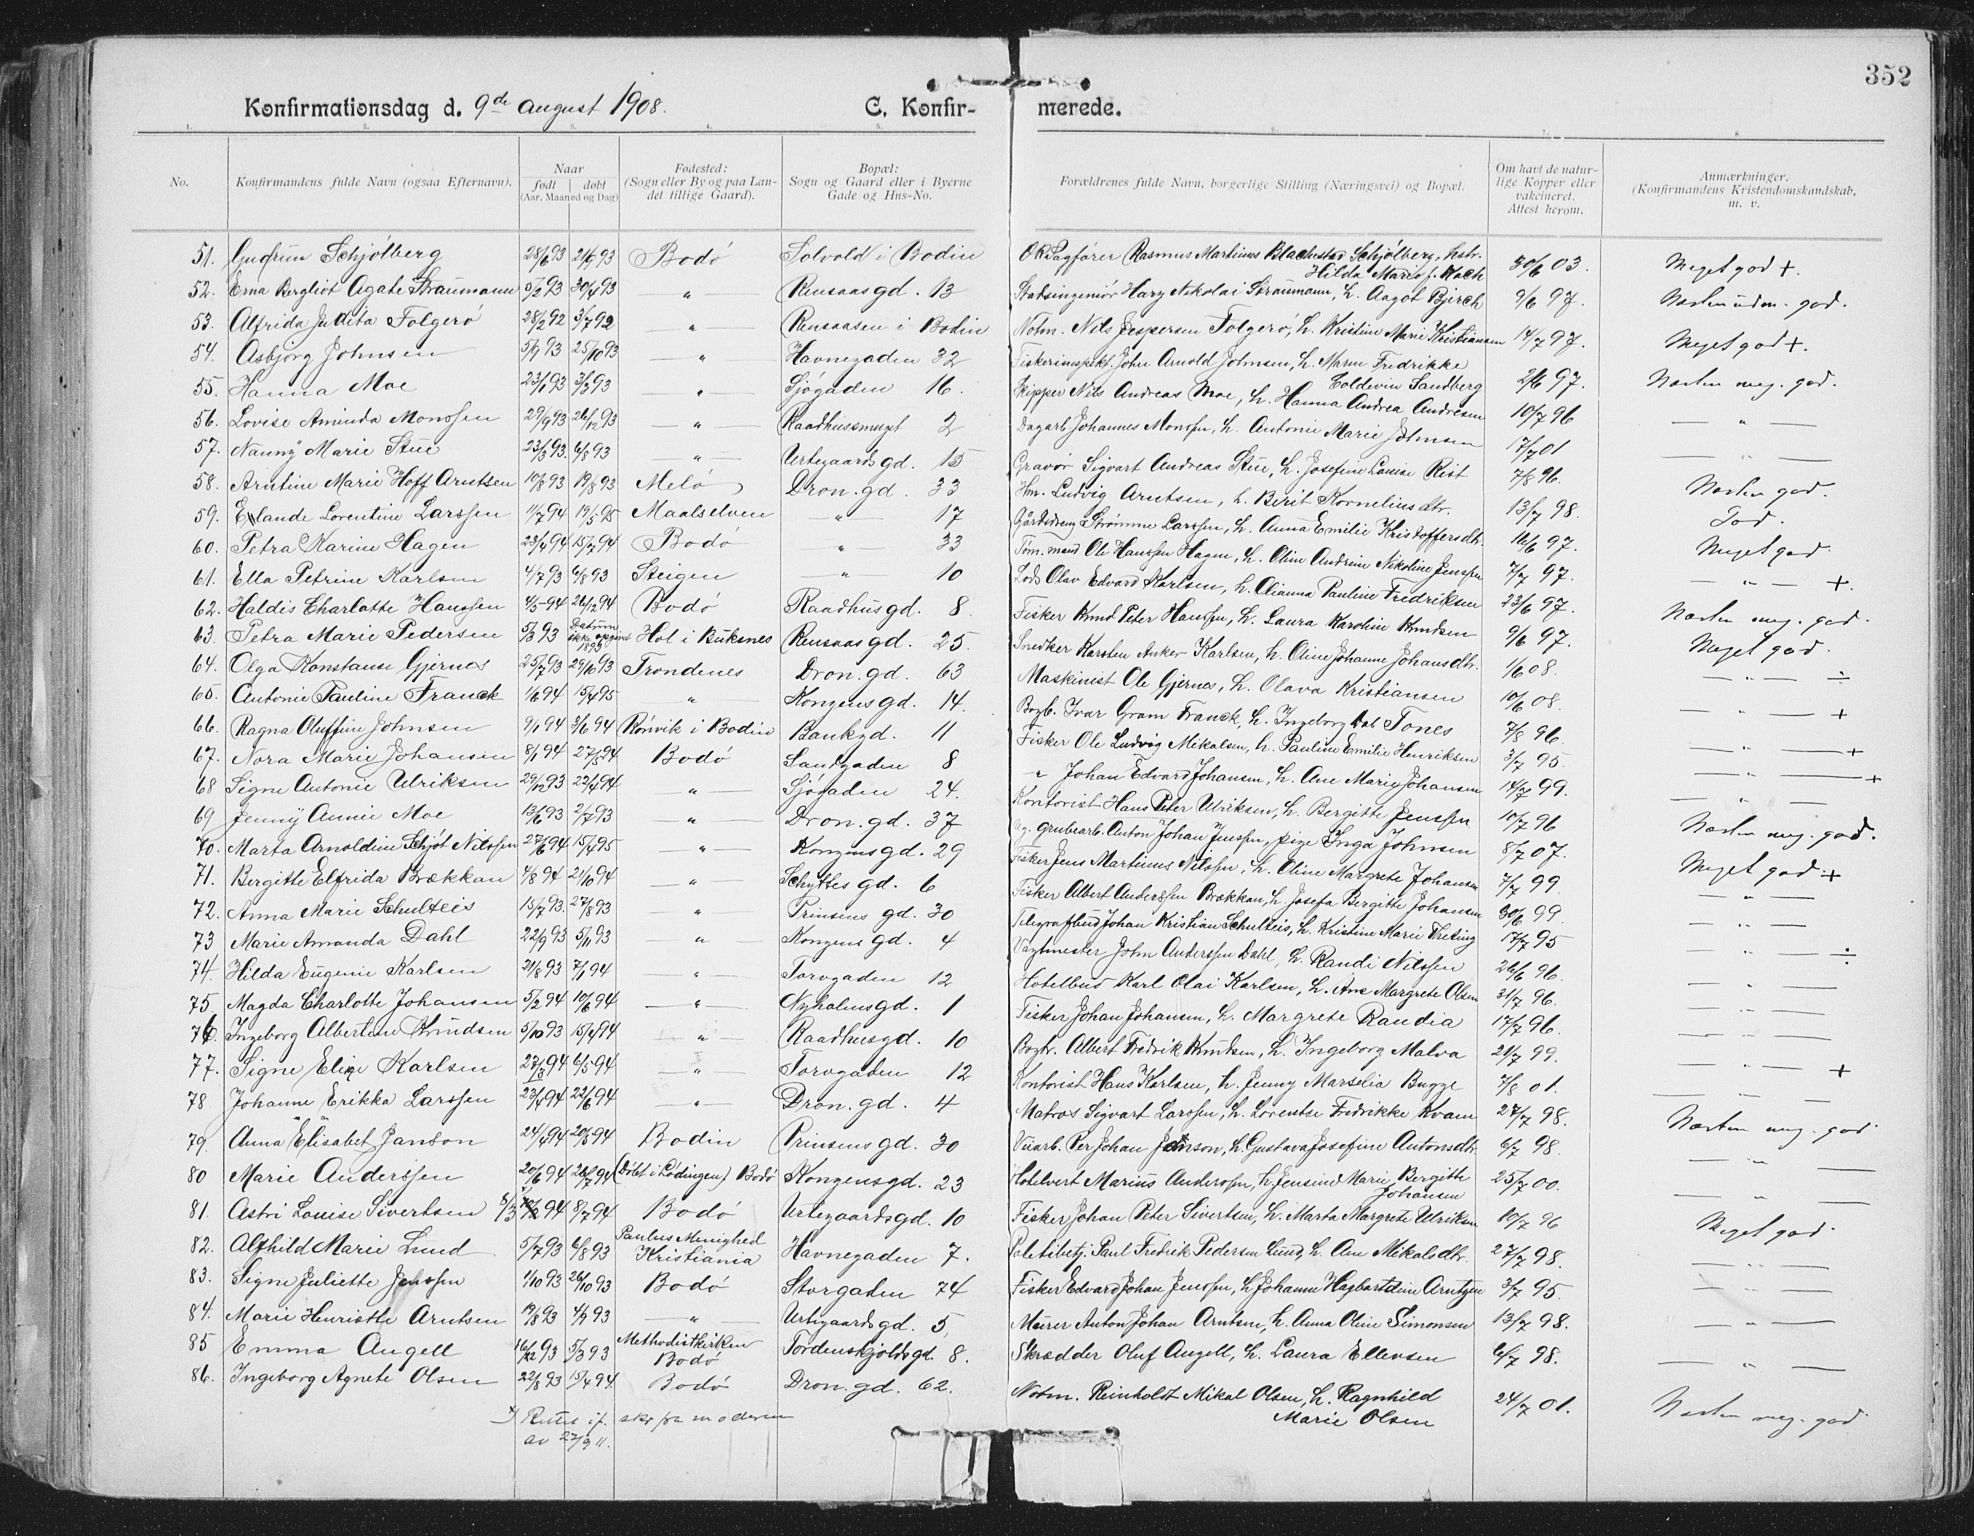 352
Konfirmationsdag d. 9de august 1908. C. Konfir- merede.
1. 2. 3. 4. 5. 6. 7. 8.
No. Konfirmandens fulde Navn (ogsaa Efternavn). Naar født | døbt (Aar, Maaned og Dag) Fødested: (Sogn eller By og paa Landet tillige Gaard). Bopæl: Sogn og Gaard eller i Byerne Gade og Hus-No. Forældrenes fulde Navn, borgerlige Stilling (Næringsvei) og Bopæl. Om havt de naturlige Kopper eller vakcineret. Attest herom. Anmærkninger. (Konfirmandens Kristendomskundskab, m. v.
51. Gudrun Schjölberg 28/6 93 Bodö Solvold i Bodin Rasmus Martinus Schjölberg, hstr. Hilda Marie f. Koch 30/6 03. Meget god +.
52. Erna Bergliot Agate Straumann 5/2 93 30/4 93 " Rensaasgd. 13 Stadsingeniør Hary Nikolai Straumann, h. Aagot Bjerch 9/6 97. Næsten udm. god.
53. Alfrida Judita Tolgerö 28/2 92 3/7 92 " Rensaasen i Bodin Notm. Nils Jespersen Tolgerö, h. Kristine Marie Kristiansen 14/7 97. Meget god +.
54. Asbjörg Johnsen 5/7 93 25/10 93 " Havnegaden 32 Fiskeriinspekt. John Arnold Johnsen, h. Maren Fredrikke Coldevin Sandberg 2/6 97. Næsten meg. god.
55. Hanna Moe 23/1 93 3/3 93 " Sjögaden 16. Skipper Nils Andreas Moe, h. Hanna Andrea Andresen 10/7 96 "
56. Lovise Aminda Monssen 29/9 93 26/12 93 " Raadhussmuget 2 Dagarb. Johannes Monsen, h. Antonie Marie Johnsen 17/7 01 "
57. Nanny Marie Stue 23/3 93. 6/8 93 " Urtegaardsgd. 15 Gravør Sigvart Andreas Stue, h. Josefine Louise Rist 7/8 96. Næsten god.
58. Arntine Marie Hoff Arntsen 10/8 93 19/8 93 Melö Dron. gd. 33 Hm. Ludvig Arntsen, h. Berit Korneliusdtr. 13/7 98.
59. Erlande Lorentine Larssen 11/7 94 19/5 95 Maalselven " 17 Gårdsdreng Strømme Larssen, h. Anna Emilie Kristoffersdtr. 16/6 97.
60. Petra Karine Hagen 23/4 94 15/7 94 Bodö " 33 Tøm. mand Ole Hanssen Hagen, h. Oline Andrine Nikoline Jenssen 7/7 97. Meget god.
61. Ella Petrine Karlsen 4/7 93 6/8 93 Steigen " 10 Lods Olav Edvard Karlsen, h. Elianna Pauline Fredriksen 23/6 97. " +
62. Haldis Charlotte Hanssen 4/5 94 26/12 94 Bodö Raadhusgd. 8. Fisker Knud Peter Hanssen, h. Laura Karoline Knudsen 9/6 97. Næsten meg. god.
63. Petra Marie Pedersen 5/3 93 Datum ikke opgivet 1893 Hol i Buksnes Rensaasgd. 25. Snedker Karsten Anker Karlsen, h. Oline Johanne Johansdtr. 1/6 08. Meget god.
64. Olga Konstanse Gjernes 25/7 93 29/10 93 Trondenes Dron. gd. 63 Maskinist Ole Gjernes, h. Olava Kristiansen 10/6 08. " ÷
65. Antonie Pauline Franck 1/6 94 15/4 95 " Kongensgd. 14. Bogb. Ivar Gram Franck, h. Ingeborg Tones 7/8 96. " +
66. Ragna Oluffine Johnsen 9/1 94 3/6 94 Rönvik i Bodin Bankgd. 11 Fisker Ole Ludvig Mikalsen, h. Pauline Emilie Henriksen 3/7 95. " +
67. Nora Marie Johansen 8/1 94 27/5 94 Bodö Sandgaden 8 " Johan Edvard Johansen, h. Ane Marie Johansen 14/7 99. " +
68 Signe Antonie Ulriksen 29/12 93 22/4 94 " Sjögaden 24. Kontorist Hans Peter Ulriksen, h. Bergitte Jenssen 10/7 96 "
69 Jenny Annie Moe 13/6 93 2/7 93 " Dron. gd. 37 grubearb. Anton Johan Jenssen, pige Inga Johnsen 8/7 07. Næsten meg. god.
70. Marta Arnoldine Schjöt Nilssen 27/6 94 15/4 95 " Kongensgd. 29 Fisker Jens Martinus Nilssen, h. Oline Margrete Johansen 7/7 99. Meget god +
71. Bergitte Elfrida Brækkan 4/8 94 21/10 94 " Schyttes gd. 6 Fisker Albert Anderssen Brækkan, h. Josefa Bergitte Johansen 30/6 99. "
72. Anna Marie Schulteis 15/7 93. 27/8 93 " Prinsens gd. 30 Telegrafbud Johan Kristian Schulteis, h. Kristine Marie 17/7 95 "
73 Marie Amanda Dahl 22/9 93 5/11 93 " Kongens gd. 4 Vagtmester John Anderssen Dahl, h. Randi Nilssen 26/6 96. " ÷
74. Hilda Eugenie Karlsen 21/8 93 7/1 94 " Torvgaden 12 Hotelbud Karl Olai Karlsen, h. Ane Margrete Olsen 31/7 96. "
75. Magda Charlotte Johansen 5/2 94 10/6 94 " Nyholmsgd. 1 Fisker Johan Johansen, h. Margrete Randia 17/7 96. "
76. Ingeborg Albertine Knudsen 5/10 93 15/4 94 " Raadhusgd. 10 Bogtr. Albert Fredrik Knudsen, h. Ingeborg Malva 21/7 99. "
77. Signe Eline Karlsen 23/3 94 6/5 94 " Torvgaden 12 Kontorist Hans Karlsen, h. Jenny Marselia Bugge 7/8 01. " +
78 Johanne Erikka Larssen 23/4 94 22/6 94 " Dron. gd. 4 Matros Sigvart Larssen, h. Lorentse Fredrikke Kvam 27/7 98. "
79. Anna Elisabet Janson 24/4 94 20/5 94 Bodin Prinsens gd. 30 Per Johan Janson, h. Gustava Josefine Antonsdtr. 6/7 98. Næsten meg. god.
80 Marie Anderssen 20/6 94 26/7 94 (Döbt i Lödingen) Bodö Kongensgd. 23 Hotelvert Marius Anderssen, h. Jensine Marie Bergitte Johansen 25/7 00. "
81. Astri Louise Sivertsen 94 8/7 94 Bodö Urtegaardsgd. 10 Fisker Johan Peter Sivertsen, h. Marta Margrete Ulriksen 10/7 96 "
82. Alfhild Marie Lund 5/7 93 6/8 93 Paulus Menighed Kristiania Havnegaden 7. Politibetj. Paul Fredrik Pedersen Lund, h. Ane Mikalsdtr. 27/7 98. Meget god.
83. Signe Juliette Jenssen 1/10 93 26/10 93 Bodö Storgaden 74 Fisker Edvard Johan Jenssen, h. Johanne Hagbartdine Arntzen 3/7 95. "
84. Marie Henriette Arntsen 19/8 93 93 " Urtegaardsgd. 5, Murer Anton Johan Arntsen, h. Anna Oline Simonsen 13/7 98. "
85 Emma Angell 16/12 93 5/3 93 Methodistkirken Bodö Tordenskjoldsgd. 8. Skrædder Oluf Angell, h. Laura Ellevsen 6/7 98. "
86. Ingeborg Agnete Olsen 22/8 93 15/4 94. Bodö Dron. gd. 62. Notm. Reinholdt Mikal Olsen, h. Ragnhild Marie Olsen 24/7 01. Næsten meg. god.
Rettet if. skr fra moderen
av 27/3 11.